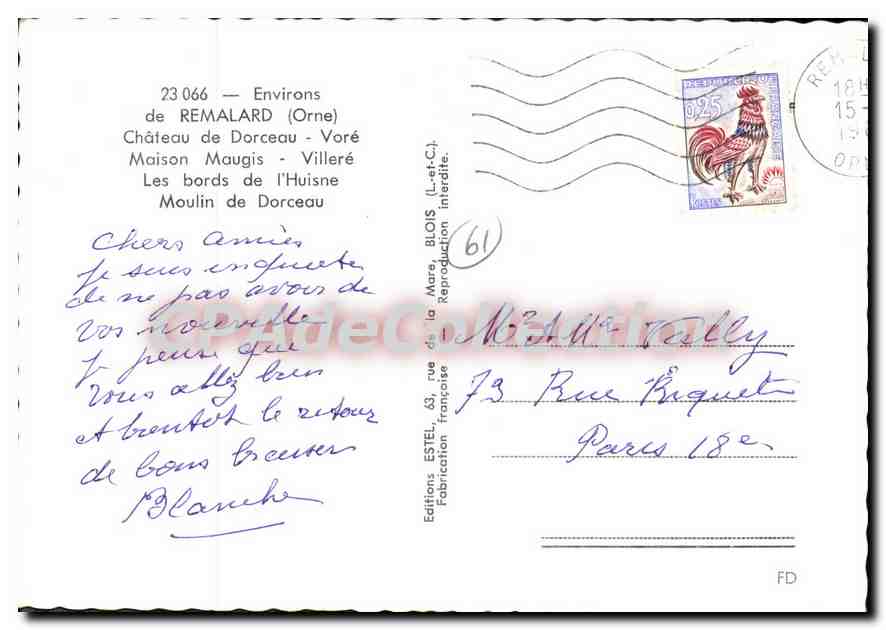 23 066 — Environs
de REMALARD (Orne)
Château de Dorceau - Voré
Maison Maugis - Villeré
Les bords de l'Huisne
Moulin de Dorceau
Chers amies
je suis inquiete
de ne pas avoir de
vos nouvelle
je pense que
vous allez bien
et bientot le retour
de bons baisers
Blanche
Editions ESTEL, 63, rue de la Mare, BLOIS (L.-et-C.).
Fabrication française - Reproduction interdite.
61
REPUBLIQUE FRANÇAISE
0,25
POSTES
18H
15-
19
OR
CPAdeCollection
Mr & Me Vally
73 Rue Riquet
Paris 18e
FD